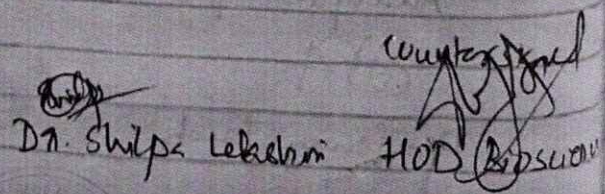 Countersigned
Dr. Shilpa Lekshmi HOD Bioscience